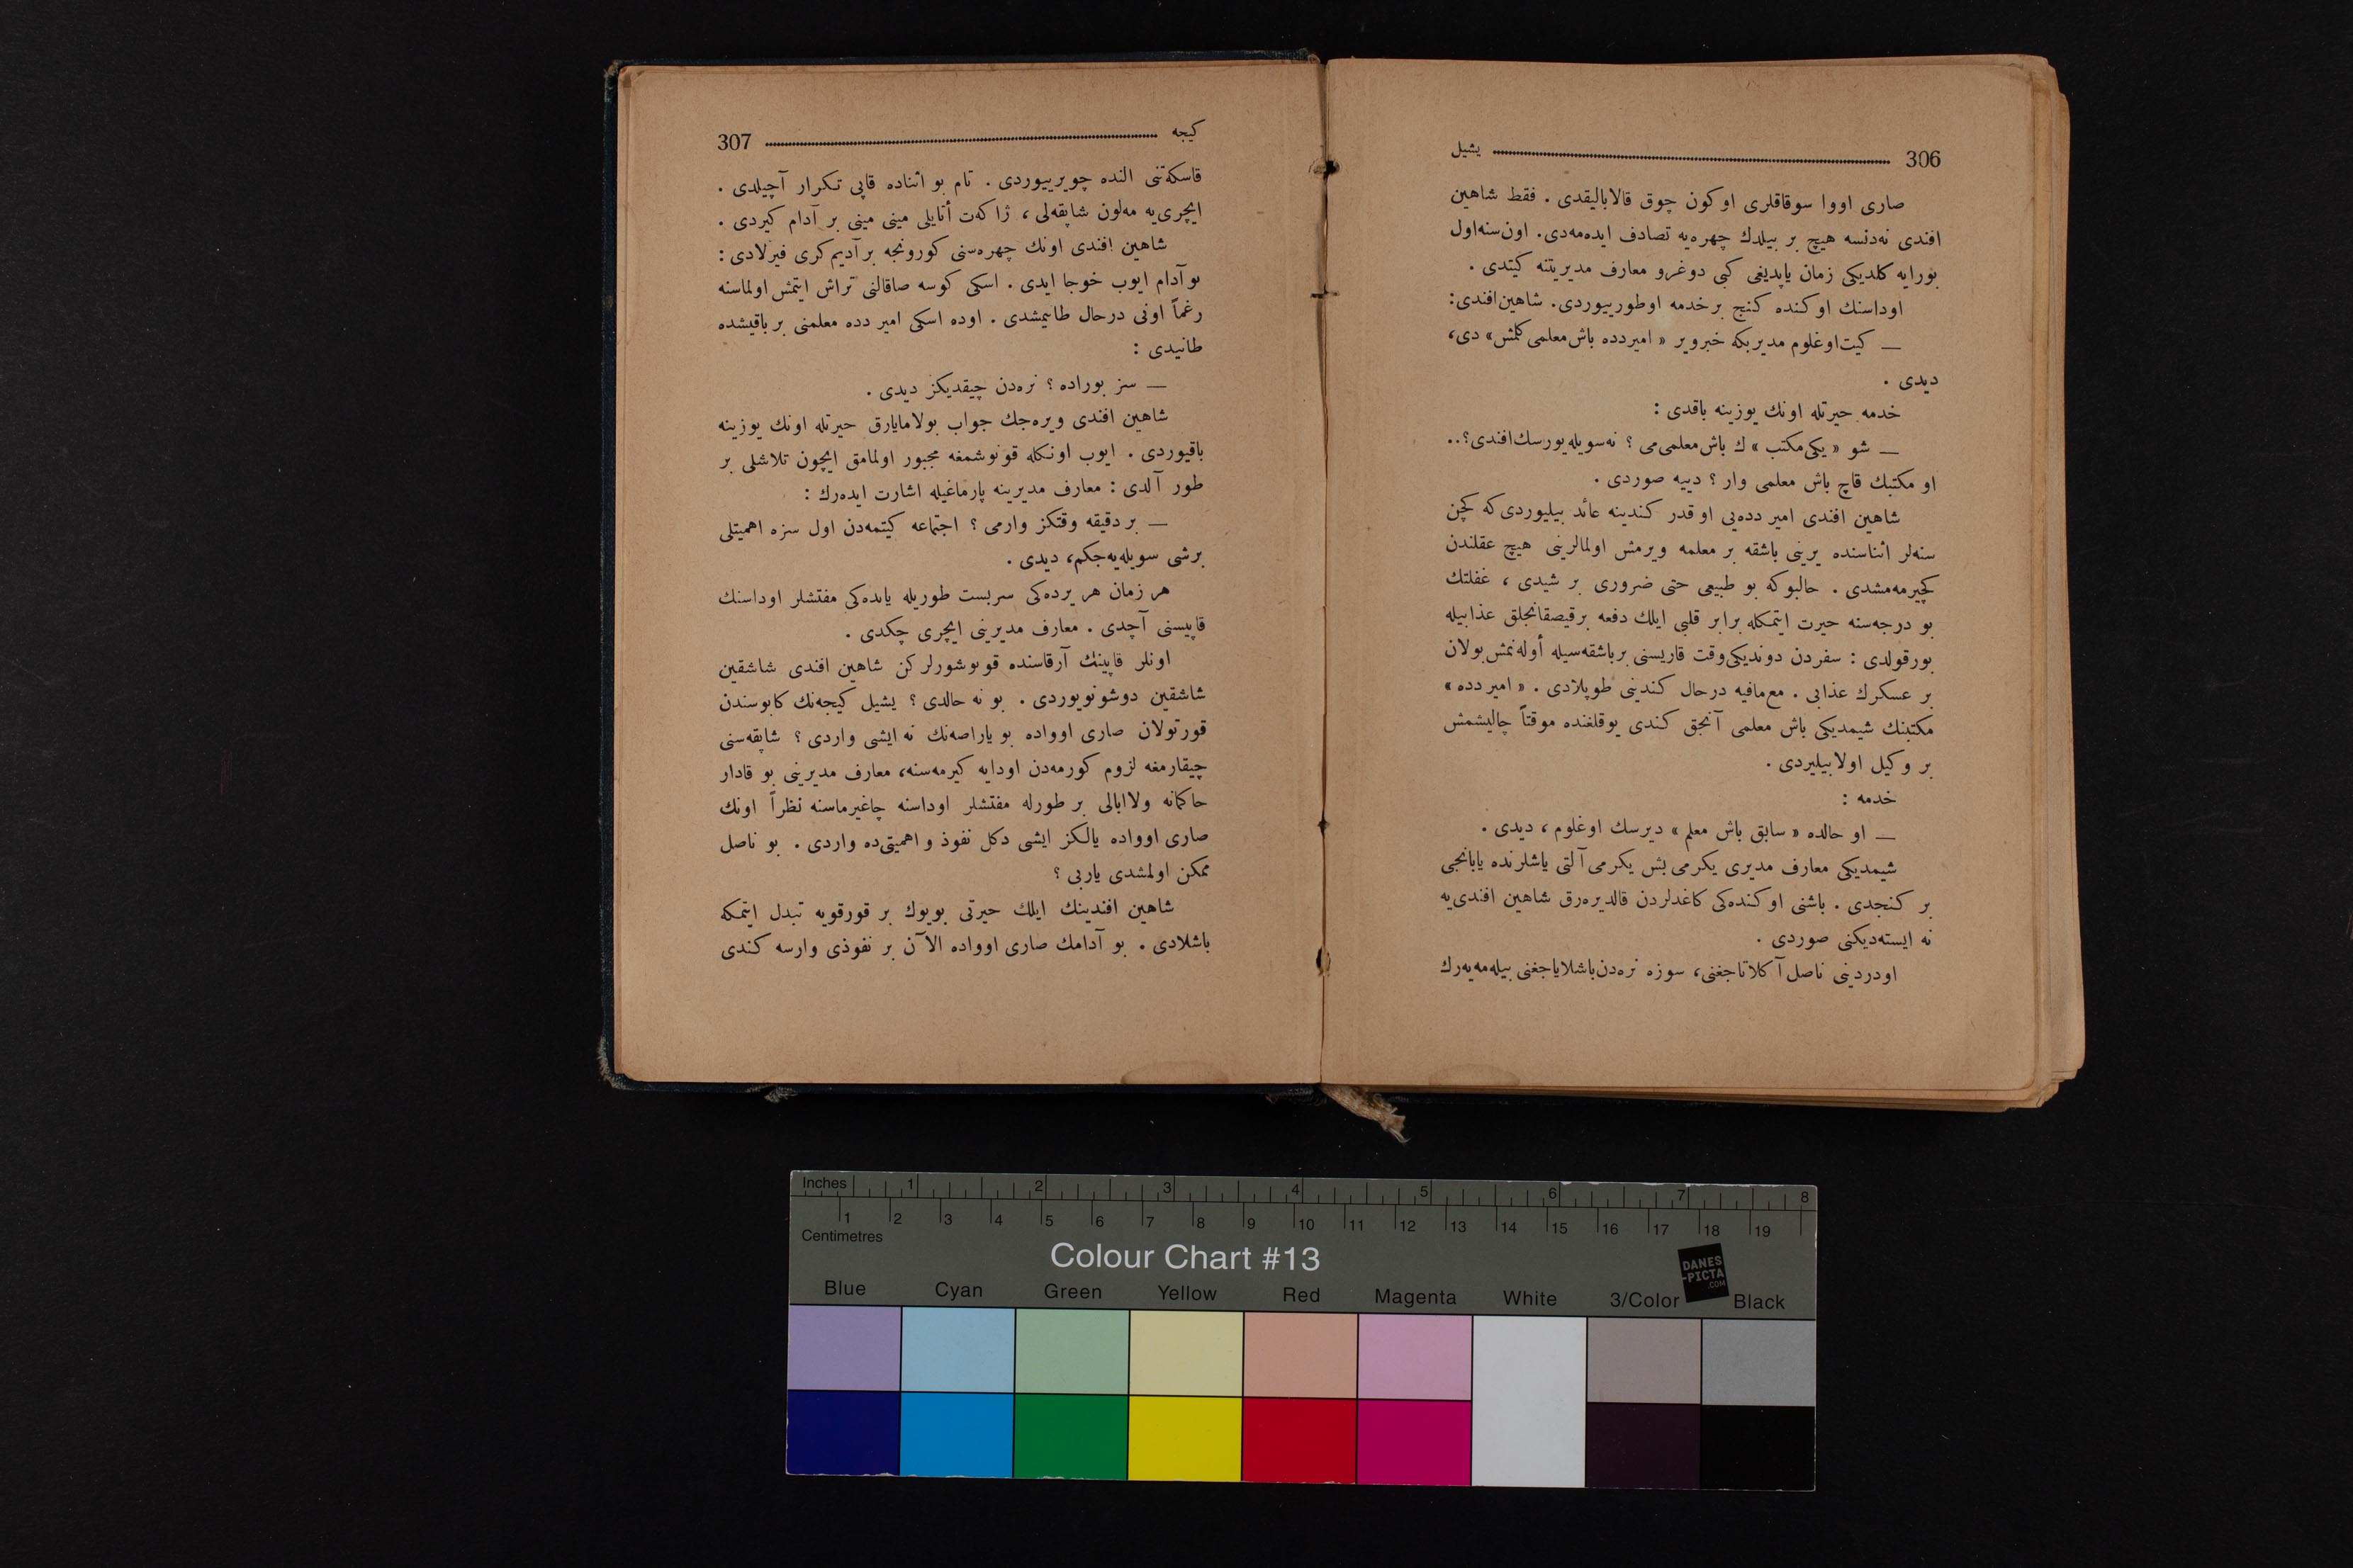 306 يشيل
صاری اووا سوقاقلری اوكون چوق قالاباليقدی . فقط شاهين
افندی نه‌دنسه هيچ بر بيلدك چهره‌يه تصادف ايده‌مه‌دی. اون‌سنه‌اول
بورايه كلديكی زمان ياپديغی كبی دوغرو معارف مديريتنه كيتدی .
اوداسنك اوكنده كنج برخدمه اوطورييوردی. شاهين‌افندی:
— كيت‌اوغلوم مديربكه خبروير « اميردده باش‌معلمی كلمش» دی،
ديدی .
خدمه حيرتله اونك يوزينه باقدی :
— شو « يكی‌مكتب » ك باش‌معلمی‌می ؟ نه‌سويله‌يورسك‌افندی؟..
او مكتبك قاچ باش معلمی وار ؟ دييه صوردی .
شاهين افندی امير دده‌يی او قدر كندينه عائد بيليوردی‌كه كچن
سنه‌لر اثناسنده يرينی باشقه بر معلمه ويرمش اولمالرينی هيچ عقلندن
كچيرمه‌مشدی . حالبوكه بو طبيعی حتی ضروری بر شيدی ، غفلتك
بو درجه‌سنه حيرت ايتمكله برابر قلبی ايلك دفعه برقيصقانجلق عذابيله
بورقولدی : سفردن دونديكی‌وقت قاريسنی برباشقه‌سيله أوله‌نمش‌بولان
بر عسكرك عذابی . مع‌مافيه درحال كندينی طوپلادی . « امير دده »
مكتبنك شيمديكی باش معلمی آنجق كندی يوقلغنده موقتاً چاليشمش
بر وكيل اولابيليردی .
خدمه :
— او حالده « سابق باش معلم » ديرسك اوغلوم ، ديدی .
شيمديكی معارف مديری يكرمی بش يكرمی آلتی ياشلرنده يابانجی
بر كنجدی . باشنی اوكنده‌كی كاغدلردن قالديره‌رق شاهين افندی‌يه
نه ايسته‌ديكنی صوردی .
اودردينی ناصل آكلاتاجغنی، سوزه نره‌دن‌باشلاياجغنی بيله‌مه‌يه‌رك
كيجه 307
قاسكه‌تنی النده چويرييوردی . تام بو اثناده قاپی تكرار آچيلدی .
ايچری‌يه مه‌لون شاپقه‌لی ، ژاكه‌ت أتايلی مينی مينی بر آدام كيردی .
شاهين افندی اونك چهره‌سنی كورونجه بر آديم كری فيرلادی :
بو آدام ايوب خوجا ايدی . اسكی كوسه صاقالنی تراش ايتمش اولماسنه
رغماً اونی درحال طانيمشدی . اوده اسكی امير دده معلمنی بر باقيشده
طانيدی :
— سز بوراده ؟ نره‌دن چيقديكز ديدی .
شاهين افندی ويره‌جك جواب بولامايارق حيرتله اونك يوزينه
باقيوردی . ايوب اونكله قونوشمغه مجبور اولمامق ايچون تلاشلی بر
طور آلدی : معارف مديرينه پارماغيله اشارت ايده‌رك :
— بر دقيقه وقتكز وارمی ؟ اجتماعه كيتمه‌دن اول سزه اهميتلی
برشی سويله‌يه‌جكم، ديدی .
هر زمان هر يرده‌كی سربست طوريله يانده‌كی مفتشلر اوداسنك
قاپيسنی آچدی . معارف مديرينی ايچری چكدی .
اونلر قاپينك آرقاسنده قونوشورلركن شاهين افندی شاشقين
شاشقين دوشونويوردی . بو نه حالدی ؟ يشيل كيجه‌نك كابوسندن
قورتولان صاری اوواده بو ياراصه‌نك نه ايشی واردی ؟ شاپقه‌سنی
چيقارمغه لزوم كورمه‌دن اودايه كيرمه‌سنه، معارف مديرينی بو قادار
حاكمانه ولاابالی بر طورله مفتشلر اوداسنه چاغيرماسنه نظراً اونك
صاری اوواده يالكز ايشی دكل نفوذ و اهميتی‌ده واردی . بو ناصل
ممكن اولمشدی ياربی ؟
شاهين افندينك ايلك حيرتی بويوك بر قورقويه تبدل ايتمكه
باشلادی . بو آدامك صاری اوواده الآن بر نفوذی وارسه كندی
Inches 1 2 3 4 5 6 7 8
1 2 3 4 5 6 7 8 9 10 11 12 13 14 15 16 17 18 19
Centimetres
Colour Chart #13
DANES
-PICTA
.COM
Blue Cyan Green Yellow Red Magenta White 3/Color Black